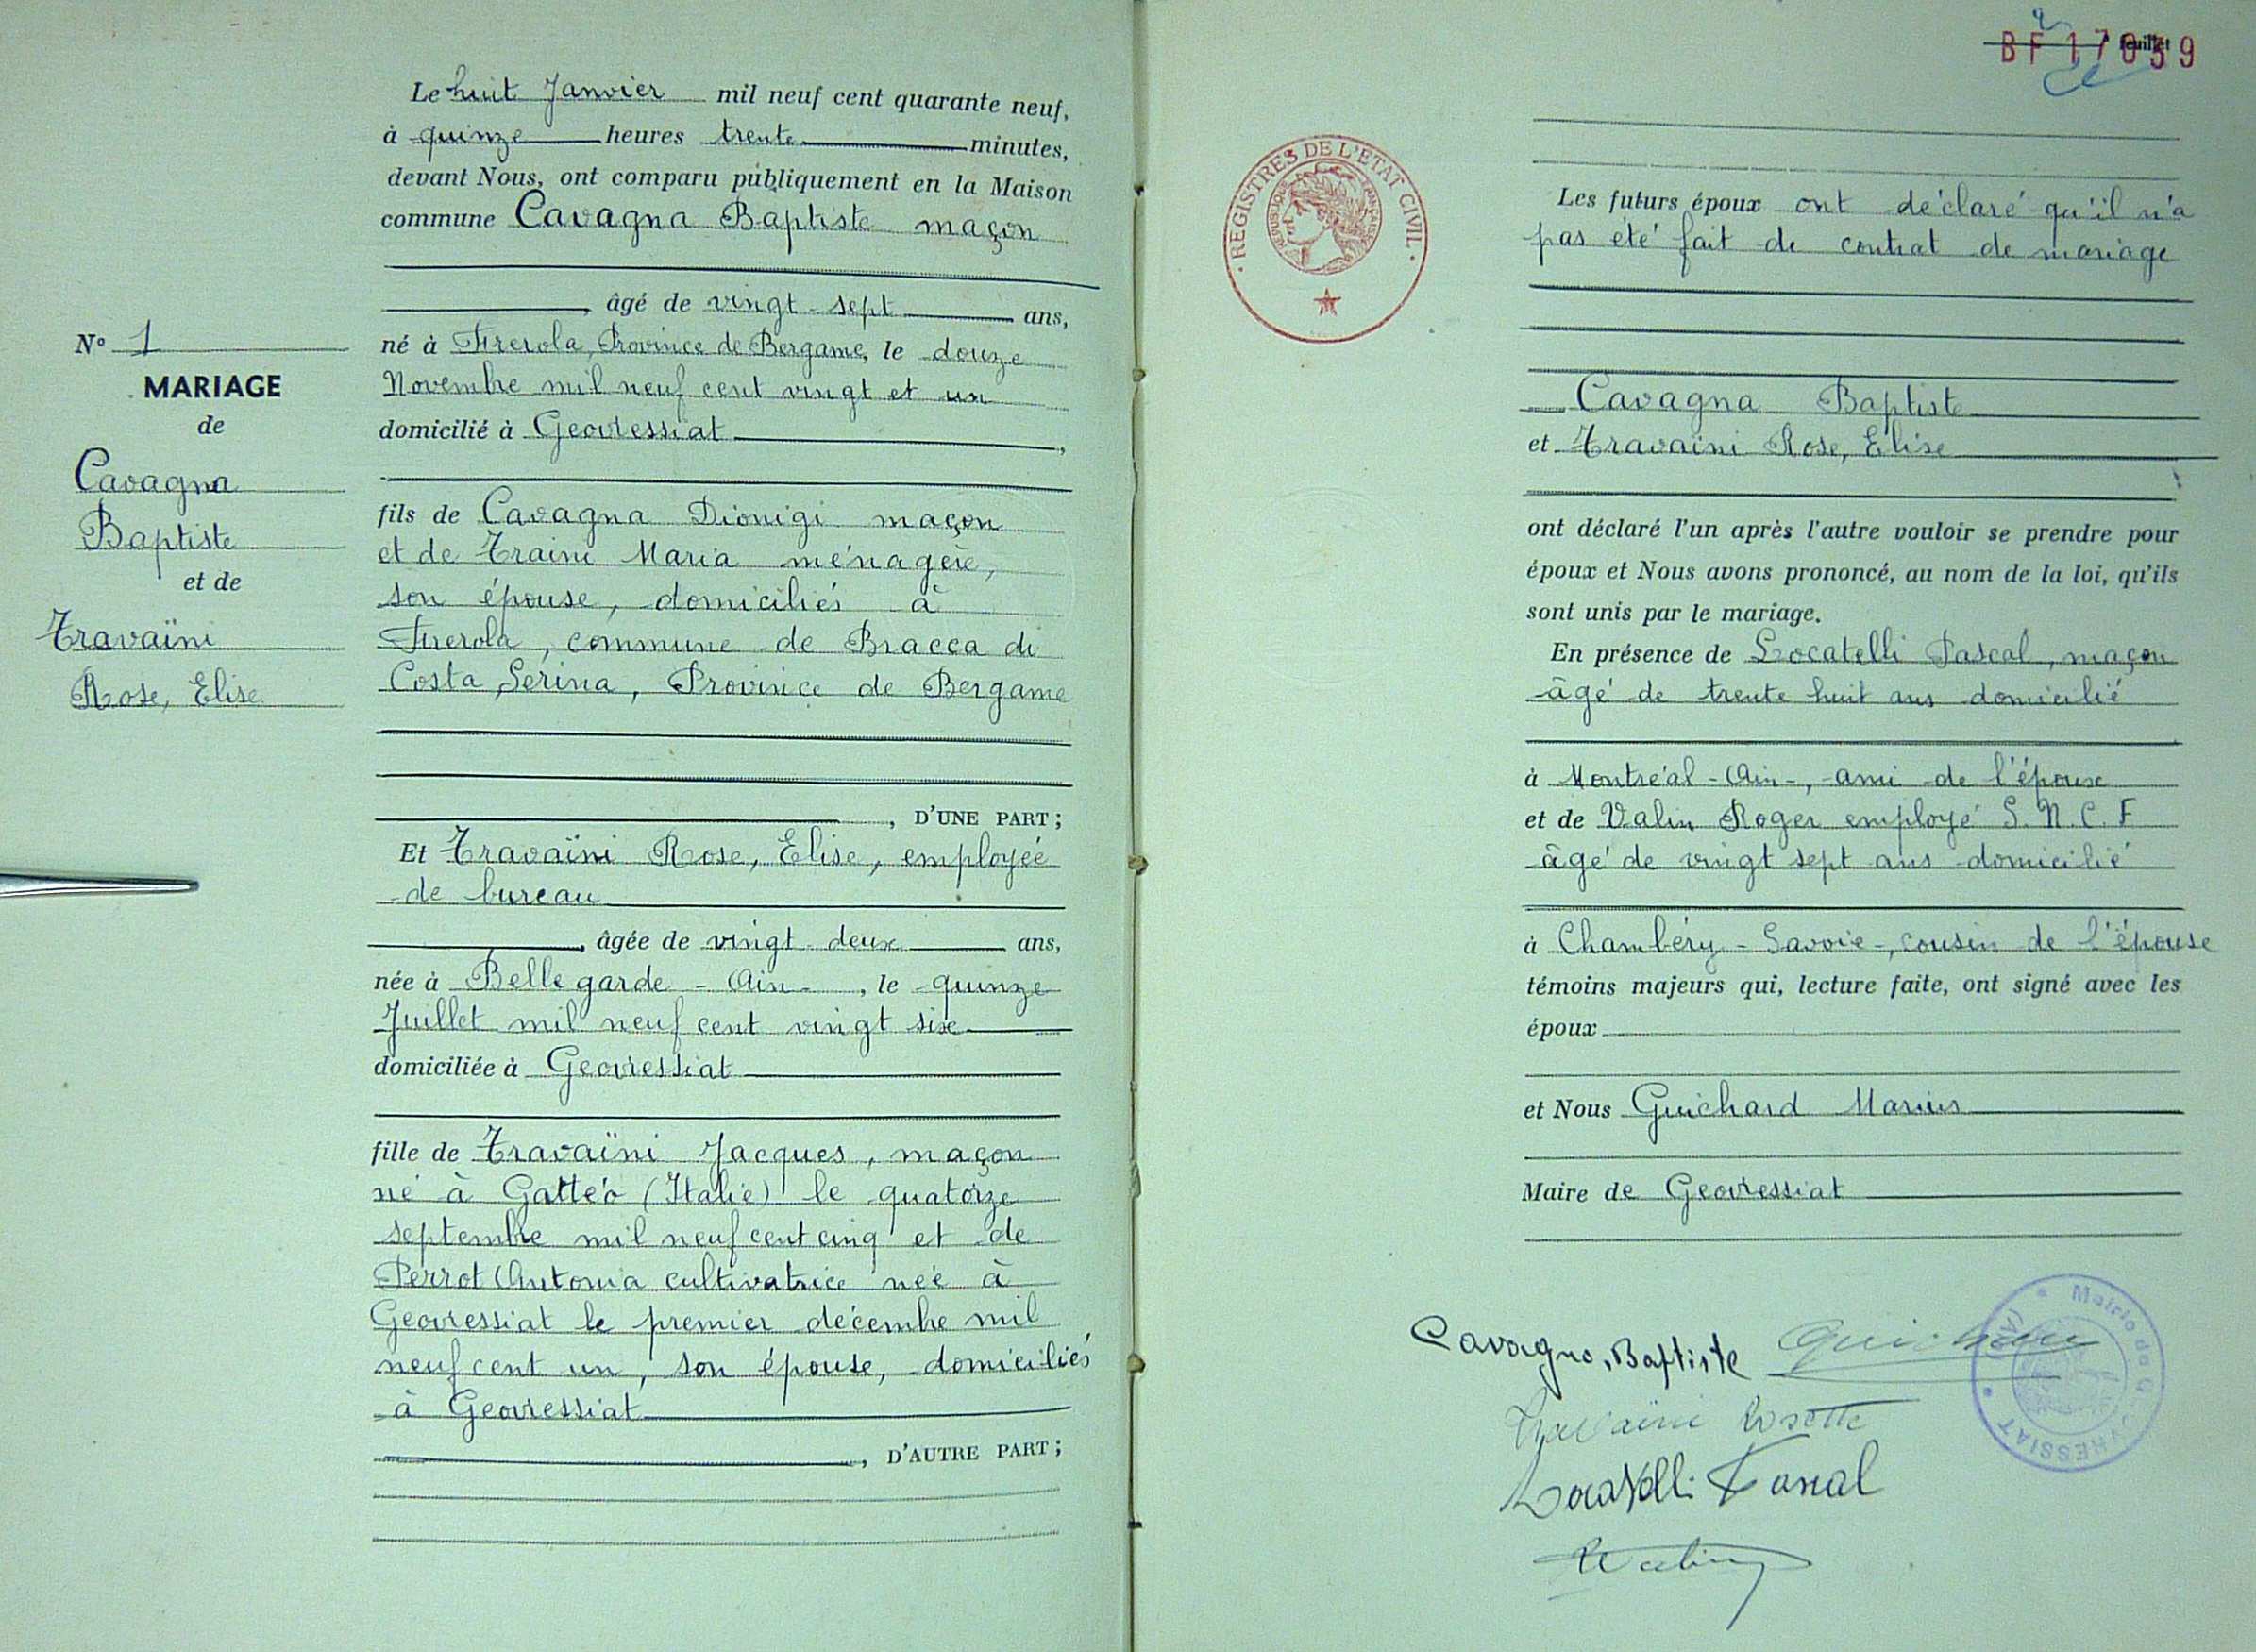 Le huit Janvier mil neuf cent quarante neuf,
à quinze heures trente minutes,
devant Nous, ont comparu publiquement en la Maison
commune Cavagna Baptiste maçon
âgé de vingt-sept ans,
né à Frerola, Province de Bergame, le douze
Novembre mil neuf cent vingt et un
domicilié à Geovressiat,
fils de Cavagna Dionigi maçon
et de Traini Maria ménagère,
son épouse, domiciliés à
Frerola, commune de Bracca di
Costa Serina, Province de Bergame
, D'UNE PART ;
Et Travaïni Rose, Elise, employée
de bureau
, âgée de vingt-deux ans,
née à Bellegarde - Ain -, le quinze
Juillet mil neuf cent vingt six
domiciliée à Geovressiat
fille de Travaïni Jacques, maçon
né à Gattéo (Italie) le quatorze
septembre mil neuf cent cinq et de
Perrot Antonia cultivatrice née à
Geovressiat le premier décembre mil
neuf cent un, son épouse, domiciliés
à Geovressiat
, D'AUTRE PART ;
N° 1
MARIAGE
de
Cavagna
Baptiste
et de
Travaïni
Rose, Elise
feuillet
BF 17059
REGISTRES DE L'ETAT CIVIL
REPUBLIQUE FRANÇAISE
Les futurs époux ont déclaré qu'il n'a
pas été fait de contrat de mariage
Cavagna Baptiste
et Travaïni Rose, Elise
ont déclaré l'un après l'autre vouloir se prendre pour
époux et Nous avons prononcé, au nom de la loi, qu'ils
sont unis par le mariage.
En présence de Locatelli Pascal, maçon
âgé de trente huit ans domicilié
à Montréal - Ain -, ami de l'épouse
et de Valin Roger employé S.N.C.F
âgé de vingt sept ans domicilié
à Chambéry - Savoie -, cousin de l'épouse
témoins majeurs qui, lecture faite, ont signé avec les
époux
et Nous Guichard Marius
Maire de Geovressiat
Cavagna, Baptiste Guichard
Travaïni Rosette
Locatelli Pascal
Valin
Mairie de GEOVRESSIAT